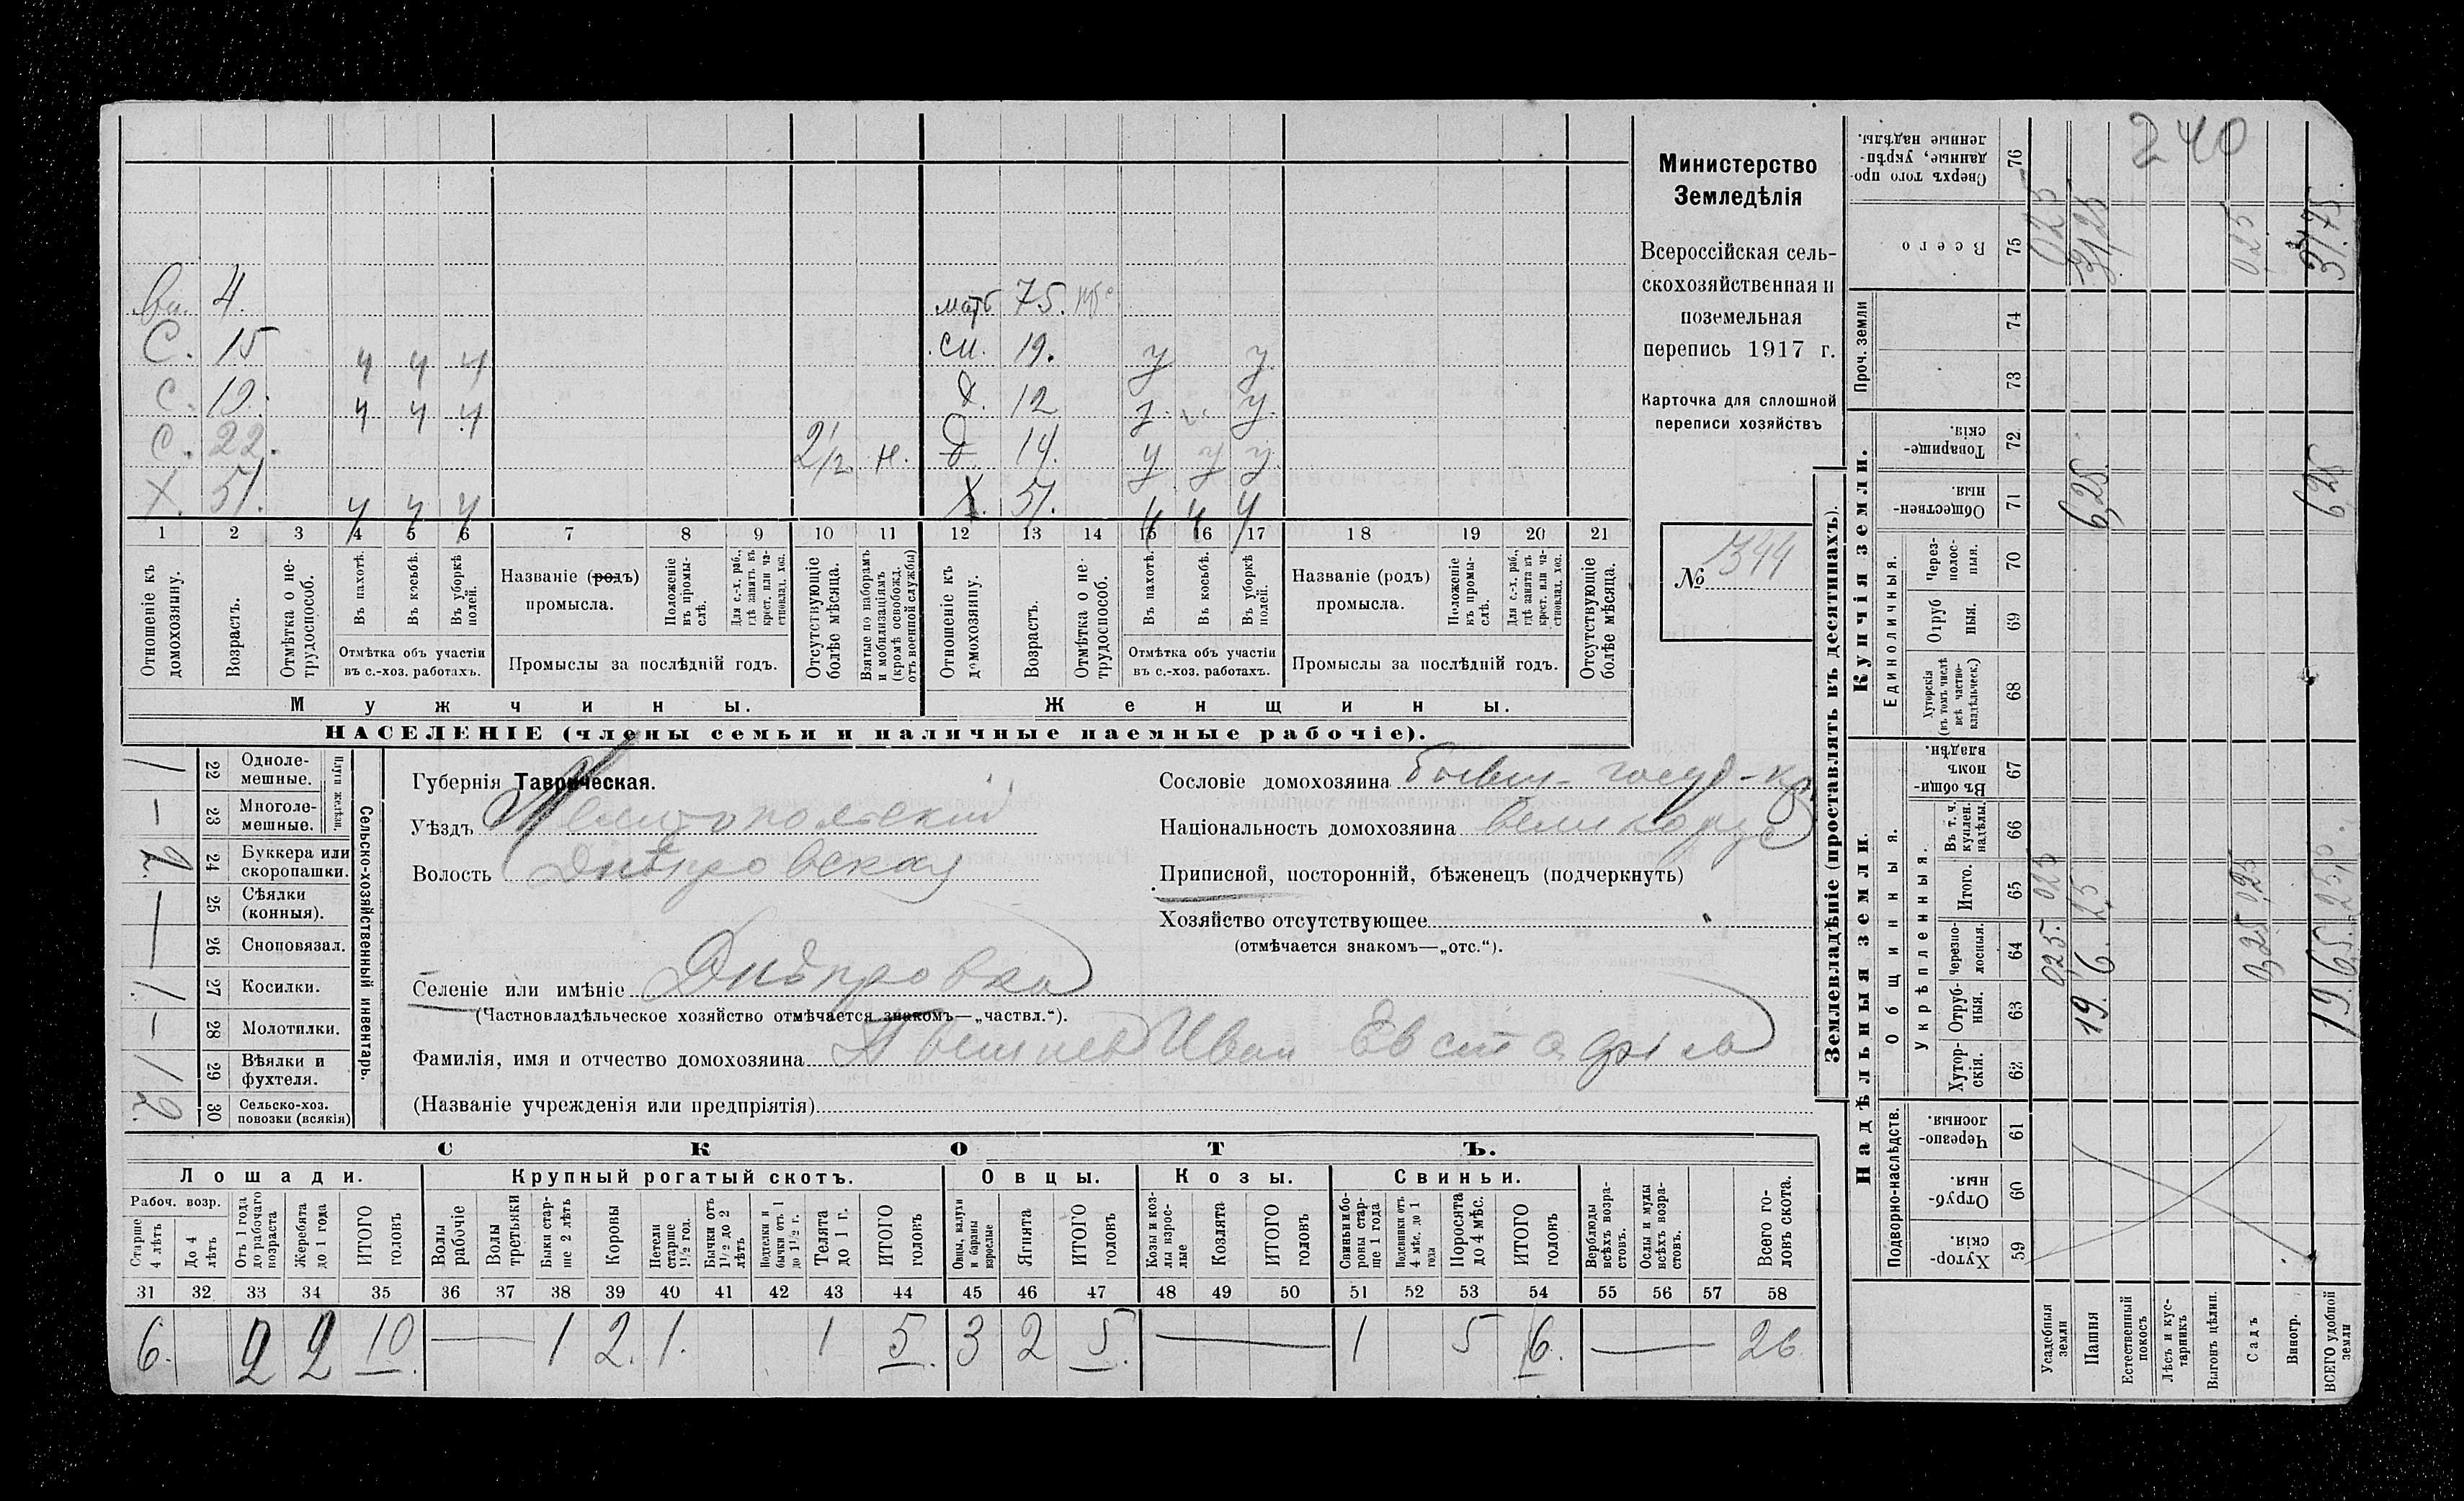 Министерство
Земледѣлія
Всероссійская сель-
скохозяйственная и
поземельная
перепись 1917 г.
Карточка для сплошной
переписи хозяйствъ
№ 1344
вн. 4.
С. 15 ч ч ч
С. 19. ч ч ч
С. 22. 2 1/2 н.
Х. 51. ч ч ч
мать 75.
сн. 19. у у
д. 12 у
д. 14. у у у
Х. 51. ч ч ч
1 2 3 4 5 6 7 8 9 10 11 12 13 14 15 16 17 18 19 20 21
Отношеніе къ домохозяину.
Возрастъ.
Отмѣтка о не-трудоспособ.
Въ пахотѣ.
Въ косьбѣ.
Въ уборкѣ полей.
Отмѣтка объ участіи въ с.-хоз. работахъ.
Названіе (родъ) промысла.
Положеніе въ промы-слѣ.
Для с.-х. раб., гдѣ занятъ въ крест. или ча-стновлад. хоз.
Промыслы за послѣдній годъ.
Отсутствующіе болѣе мѣсяца.
Взятые по наборамъ и мобилизаціямъ (кромѣ освобожд. отъ военной службы)
Отношеніе къ домохозяину.
Возрастъ.
Отмѣтка о не-трудоспособ.
Въ пахотѣ.
Въ косьбѣ.
Въ уборкѣ полей.
Отмѣтка объ участіи въ с.-хоз. работахъ.
Названіе (родъ) промысла.
Положеніе въ промы-слѣ.
Для с.-х. раб., гдѣ занята въ крест. или ча-стновлад. хоз.
Промыслы за послѣдній годъ.
Отсутствующіе болѣе мѣсяца.
Мужчины.
Женщины.
НАСЕЛЕНІЕ (члены семьи и наличные наемные рабочіе).
Сельско-хозяйственный инвентарь.
Плуги желѣзн.
22 Одноле-мешные. 1
23 Многоле-мешные. –
24 Буккера или скоропашки. 2
25 Сѣялки (конныя). –
26 Сноповязал. –
27 Косилки. 1
28 Молотилки. –
29 Вѣялки и фухтеля. 1
30 Сельско-хоз. повозки (всякія) 2
Губернія Таврическая.
Уѣздъ Мелитопольскій
Волость Днѣпровская
Сословіе домохозяина бывш. госуд-кр.
Національность домохозяина великорус
Приписной, посторонній, бѣженецъ (подчеркнуть)
Хозяйство отсутствующее "
(отмѣчается знакомъ—„отс.“).
Селеніе или имѣніе Днѣпровка
(Частновладѣльческое хозяйство отмѣчается знакомъ—„частвл.“).
Фамилія, имя и отчество домохозяина Иван Евстафьев
(Названіе учрежденія или предпріятія)
СКОТЪ.
Лошади. Крупный рогатый скотъ. Овцы. Козы. Свиньи.
Рабоч. возр.
Старше 4 лѣтъ
До 4 лѣтъ
Отъ 1 года до рабочаго возраста
Жеребята до 1 года
ИТОГО головъ
Волы рабочіе
Волы третьяки
Быки стар-ше 2 лѣтъ
Коровы
Нетели старше 1½ год.
Бычки отъ 1½ до 2 лѣтъ
Подтелки и бычки отъ 1 до 1½ г.
Телята до 1 г.
ИТОГО головъ
Овцы, валухи и бараны взрослые
Ягнята
ИТОГО головъ
Козы и коз-лы взрос-лые
Козлята
ИТОГО головъ
Свиньи и бо-ровы стар-ше 1 года
Подсвинки отъ 4 мѣс. до 1 года
Поросята до 4 мѣс.
ИТОГО головъ
Верблюды всѣхъ возра-стовъ.
Ослы и мулы всѣхъ возра-стовъ.
Всего го-ловъ скота.
31 32 33 34 35 36 37 38 39 40 41 42 43 44 45 46 47 48 49 50 51 52 53 54 55 56 57 58
6. 2 2 10. — 1 2. 1. 1 5. 3 2 5. — 1 5 6. — 26
Землевладѣніе (проставлять въ десятинахъ).
240
Сверхъ того про-данные, укрѣп-ленные надѣлы. 76
Всего 75 0,25 31,25 0,25 31,75.
Проч. земли 74 73
Купчія земли.
Товарище-скія. 72
Обществен-ныя. 71 6,25 6,25
Единоличныя.
Через-полос-ныя. 70
Отруб ныя. 69
Хуторскія (въ томъ числѣ всѣ частно-владѣльческ.) 68
Надѣльныя земли.
Въ общи-номъ владѣн. 67
Общинныя.
Укрѣпленныя.
Въ т. ч. куплен. надѣлы. 66
Итого. 65 0,25 25 0,25
Черезпо-лосныя. 64 0,25. 0,25
Отруб-ныя. 63
Хутор-скія. 62
Подворно-наслѣдств.
Черезпо-лосныя. 61
Отруб-ныя. 60
Хутор-скія. 59
Усадебныя земли
Пашня
Естественный покосъ
Лѣсъ и кус-тарникъ
Выгонъ цѣлин.
Садъ
Виногр.
ВСЕГО удобной земли